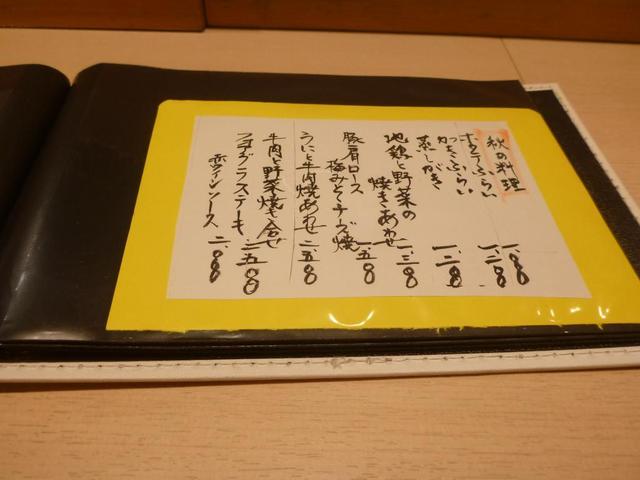 秋の料理
ホタテふらい 一.〇〇〇
かきふらい 一.二〇〇
蒸しがき 一.二〇〇
地鶏と野菜の
焼きあわせ 一.三〇〇
豚肩ロース
梅みそチーズ焼 一.五〇〇
うにと牛肉焼あわせ 二.五〇〇
牛肉と野菜焼き合せ
フォアグラステーキ 二.五〇〇
赤ワインソース 二.〇〇〇